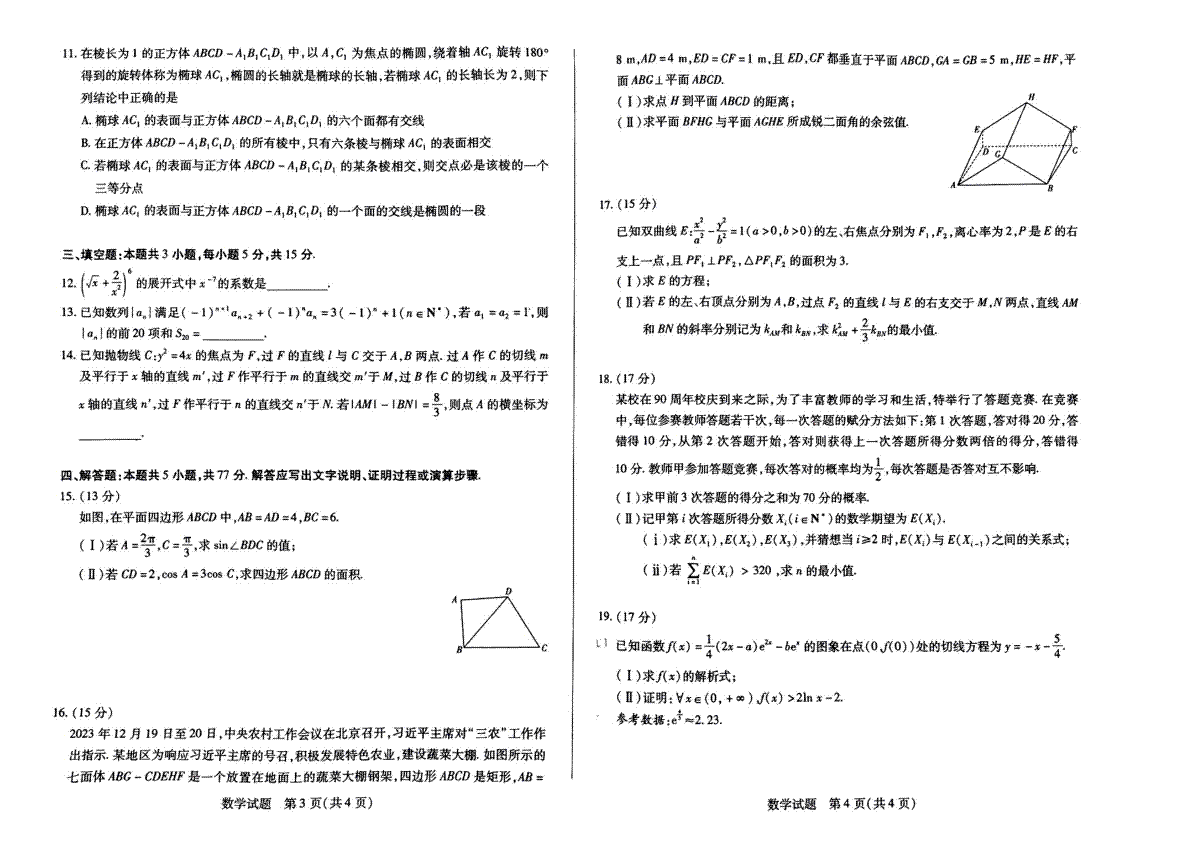 11. 在棱长为 1 的正方体 ABCD-A₁B₁C₁D₁ 中,以 A,C₁ 为焦点的椭圆,绕着轴 AC₁ 旋转 180°
得到的旋转体称为椭球 AC₁,椭圆的长轴就是椭球的长轴,若椭球 AC₁ 的长轴长为 2,则下
列结论中正确的是
A. 椭球 AC₁ 的表面与正方体 ABCD-A₁B₁C₁D₁ 的六个面都有交线
B. 在正方体 ABCD-A₁B₁C₁D₁ 的所有棱中,只有六条棱与椭球 AC₁ 的表面相交
C. 若椭球 AC₁ 的表面与正方体 ABCD-A₁B₁C₁D₁ 的某条棱相交,则交点必是该棱的一个
三等分点
D. 椭球 AC₁ 的表面与正方体 ABCD-A₁B₁C₁D₁ 的一个面的交线是椭圆的一段
三、填空题:本题共 3 小题,每小题 5 分,共 15 分.
12. (√x + 2/x²)⁶ 的展开式中 x⁻⁷ 的系数是________.
13. 已知数列{aₙ}满足(-1)ⁿ⁺¹aₙ₊₂+(-1)ⁿaₙ=3(-1)ⁿ+1(n∈N*),若 a₁=a₂=1,则
{aₙ}的前 20 项和 S₂₀=________.
14. 已知抛物线 C:y²=4x 的焦点为 F,过 F 的直线 l 与 C 交于 A,B 两点. 过 A 作 C 的切线 m
及平行于 x 轴的直线 m′,过 F 作平行于 m 的直线交 m′于 M,过 B 作 C 的切线 n 及平行于
x 轴的直线 n′,过 F 作平行于 n 的直线交 n′于 N. 若|AM|-|BN|=8/3,则点 A 的横坐标为
________.
四、解答题:本题共 5 小题,共 77 分. 解答应写出文字说明、证明过程或演算步骤.
15. (13 分)
如图,在平面四边形 ABCD 中,AB=AD=4,BC=6.
(Ⅰ)若 A=2π/3,C=π/3,求 sin∠BDC 的值;
(Ⅱ)若 CD=2,cos A=3cos C,求四边形 ABCD 的面积.
A
D
B
C
16. (15 分)
2023 年 12 月 19 日至 20 日,中央农村工作会议在北京召开,习近平主席对“三农”工作作
出指示. 某地区为响应习近平主席的号召,积极发展特色农业,建设蔬菜大棚. 如图所示的
七面体 ABG-CDEHF 是一个放置在地面上的蔬菜大棚钢架,四边形 ABCD 是矩形,AB=
数学试题 第 3 页(共 4 页)
8 m,AD=4 m,ED=CF=1 m,且 ED,CF 都垂直于平面 ABCD,GA=GB=5 m,HE=HF,平
面 ABG⊥平面 ABCD.
(Ⅰ)求点 H 到平面 ABCD 的距离;
(Ⅱ)求平面 BFHG 与平面 AGHE 所成锐二面角的余弦值.
H
E
F
D
G
C
A
B
17. (15 分)
已知双曲线 E:x²/a²-y²/b²=1(a>0,b>0)的左、右焦点分别为 F₁,F₂,离心率为 2,P 是 E 的右
支上一点,且 PF₁⊥PF₂,△PF₁F₂ 的面积为 3.
(Ⅰ)求 E 的方程;
(Ⅱ)若 E 的左、右顶点分别为 A,B,过点 F₂ 的直线 l 与 E 的右支交于 M,N 两点,直线 AM
和 BN 的斜率分别记为 k_AM 和 k_BN,求 k²_AM+2/3 k_BN 的最小值.
18. (17 分)
某校在 90 周年校庆到来之际,为了丰富教师的学习和生活,特举行了答题竞赛. 在竞赛
中,每位参赛教师答题若干次,每一次答题的赋分方法如下:第 1 次答题,答对得 20 分,答
错得 10 分,从第 2 次答题开始,答对则获得上一次答题所得分数两倍的得分,答错得
10 分. 教师甲参加答题竞赛,每次答对的概率均为 1/2,每次答题是否答对互不影响.
(Ⅰ)求甲前 3 次答题的得分之和为 70 分的概率.
(Ⅱ)记甲第 i 次答题所得分数 Xᵢ(i∈N*)的数学期望为 E(Xᵢ).
(ⅰ)求 E(X₁),E(X₂),E(X₃),并猜想当 i≥2 时,E(Xᵢ)与 E(Xᵢ₋₁)之间的关系式;
(ⅱ)若 ∑ᵢ₌₁ⁿ E(Xᵢ)>320,求 n 的最小值.
19. (17 分)
已知函数 f(x)=1/4(2x-a)e²ˣ-beˣ 的图象在点(0,f(0))处的切线方程为 y=-x-5/4.
(Ⅰ)求 f(x)的解析式;
(Ⅱ)证明:∀x∈(0,+∞),f(x)>2ln x-2.
参考数据:e^(4/5)≈2.23.
数学试题 第 4 页(共 4 页)